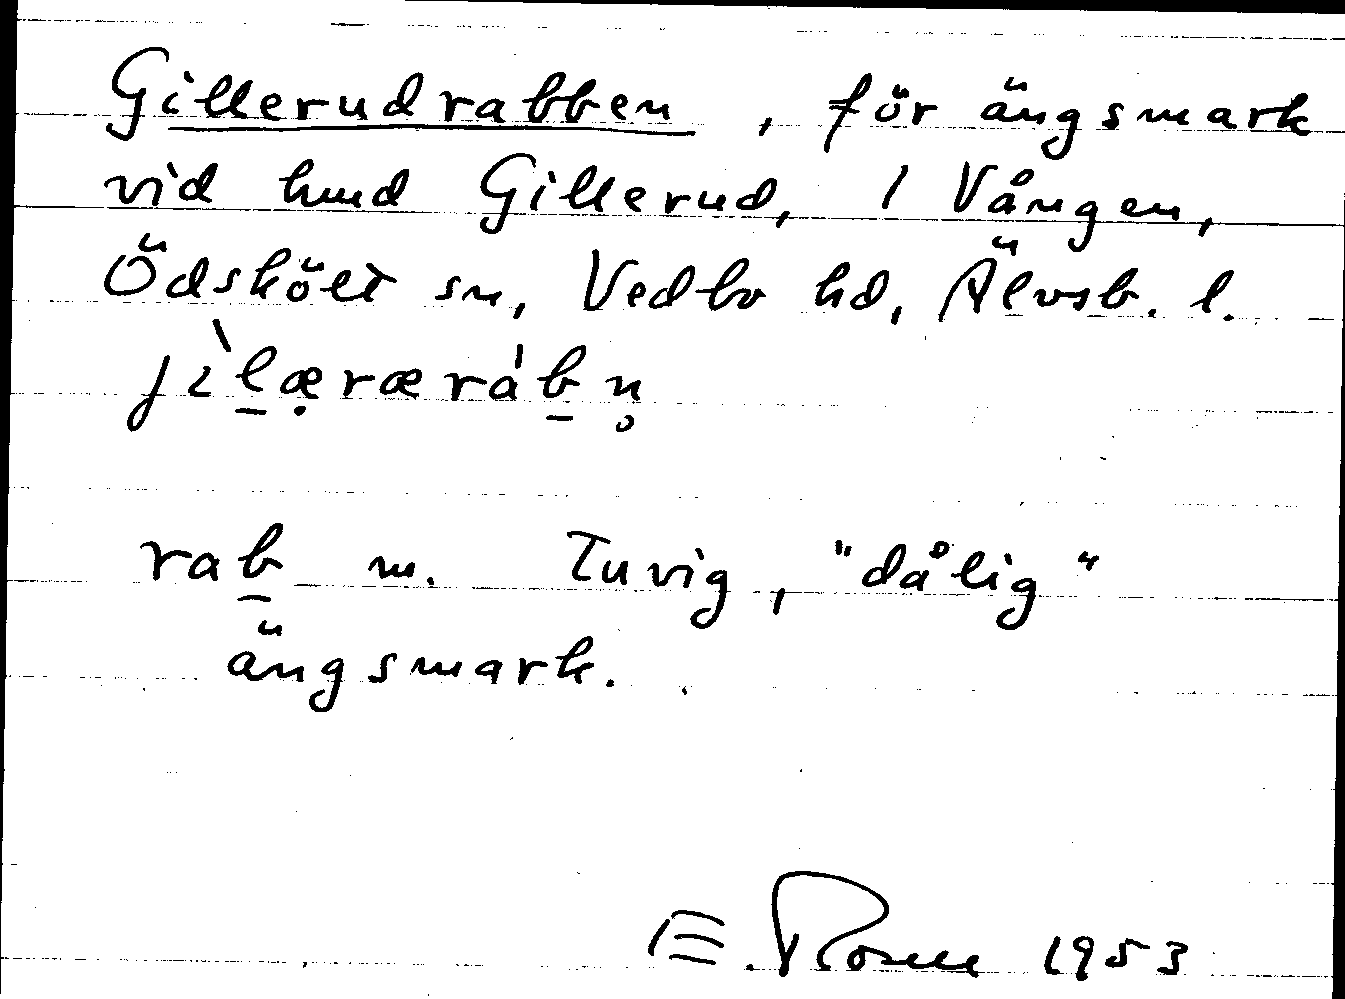 Gillerudrabben, för ängsmark
vid hmd Gillerud, 1 Vången,
Ödskölt sn, Vedbo hd, Älvsb. l.
jìl̠æ̣ræràb̠n̥
rab̠ m. Tuvig, "dålig"
ängsmark.
E. 1953